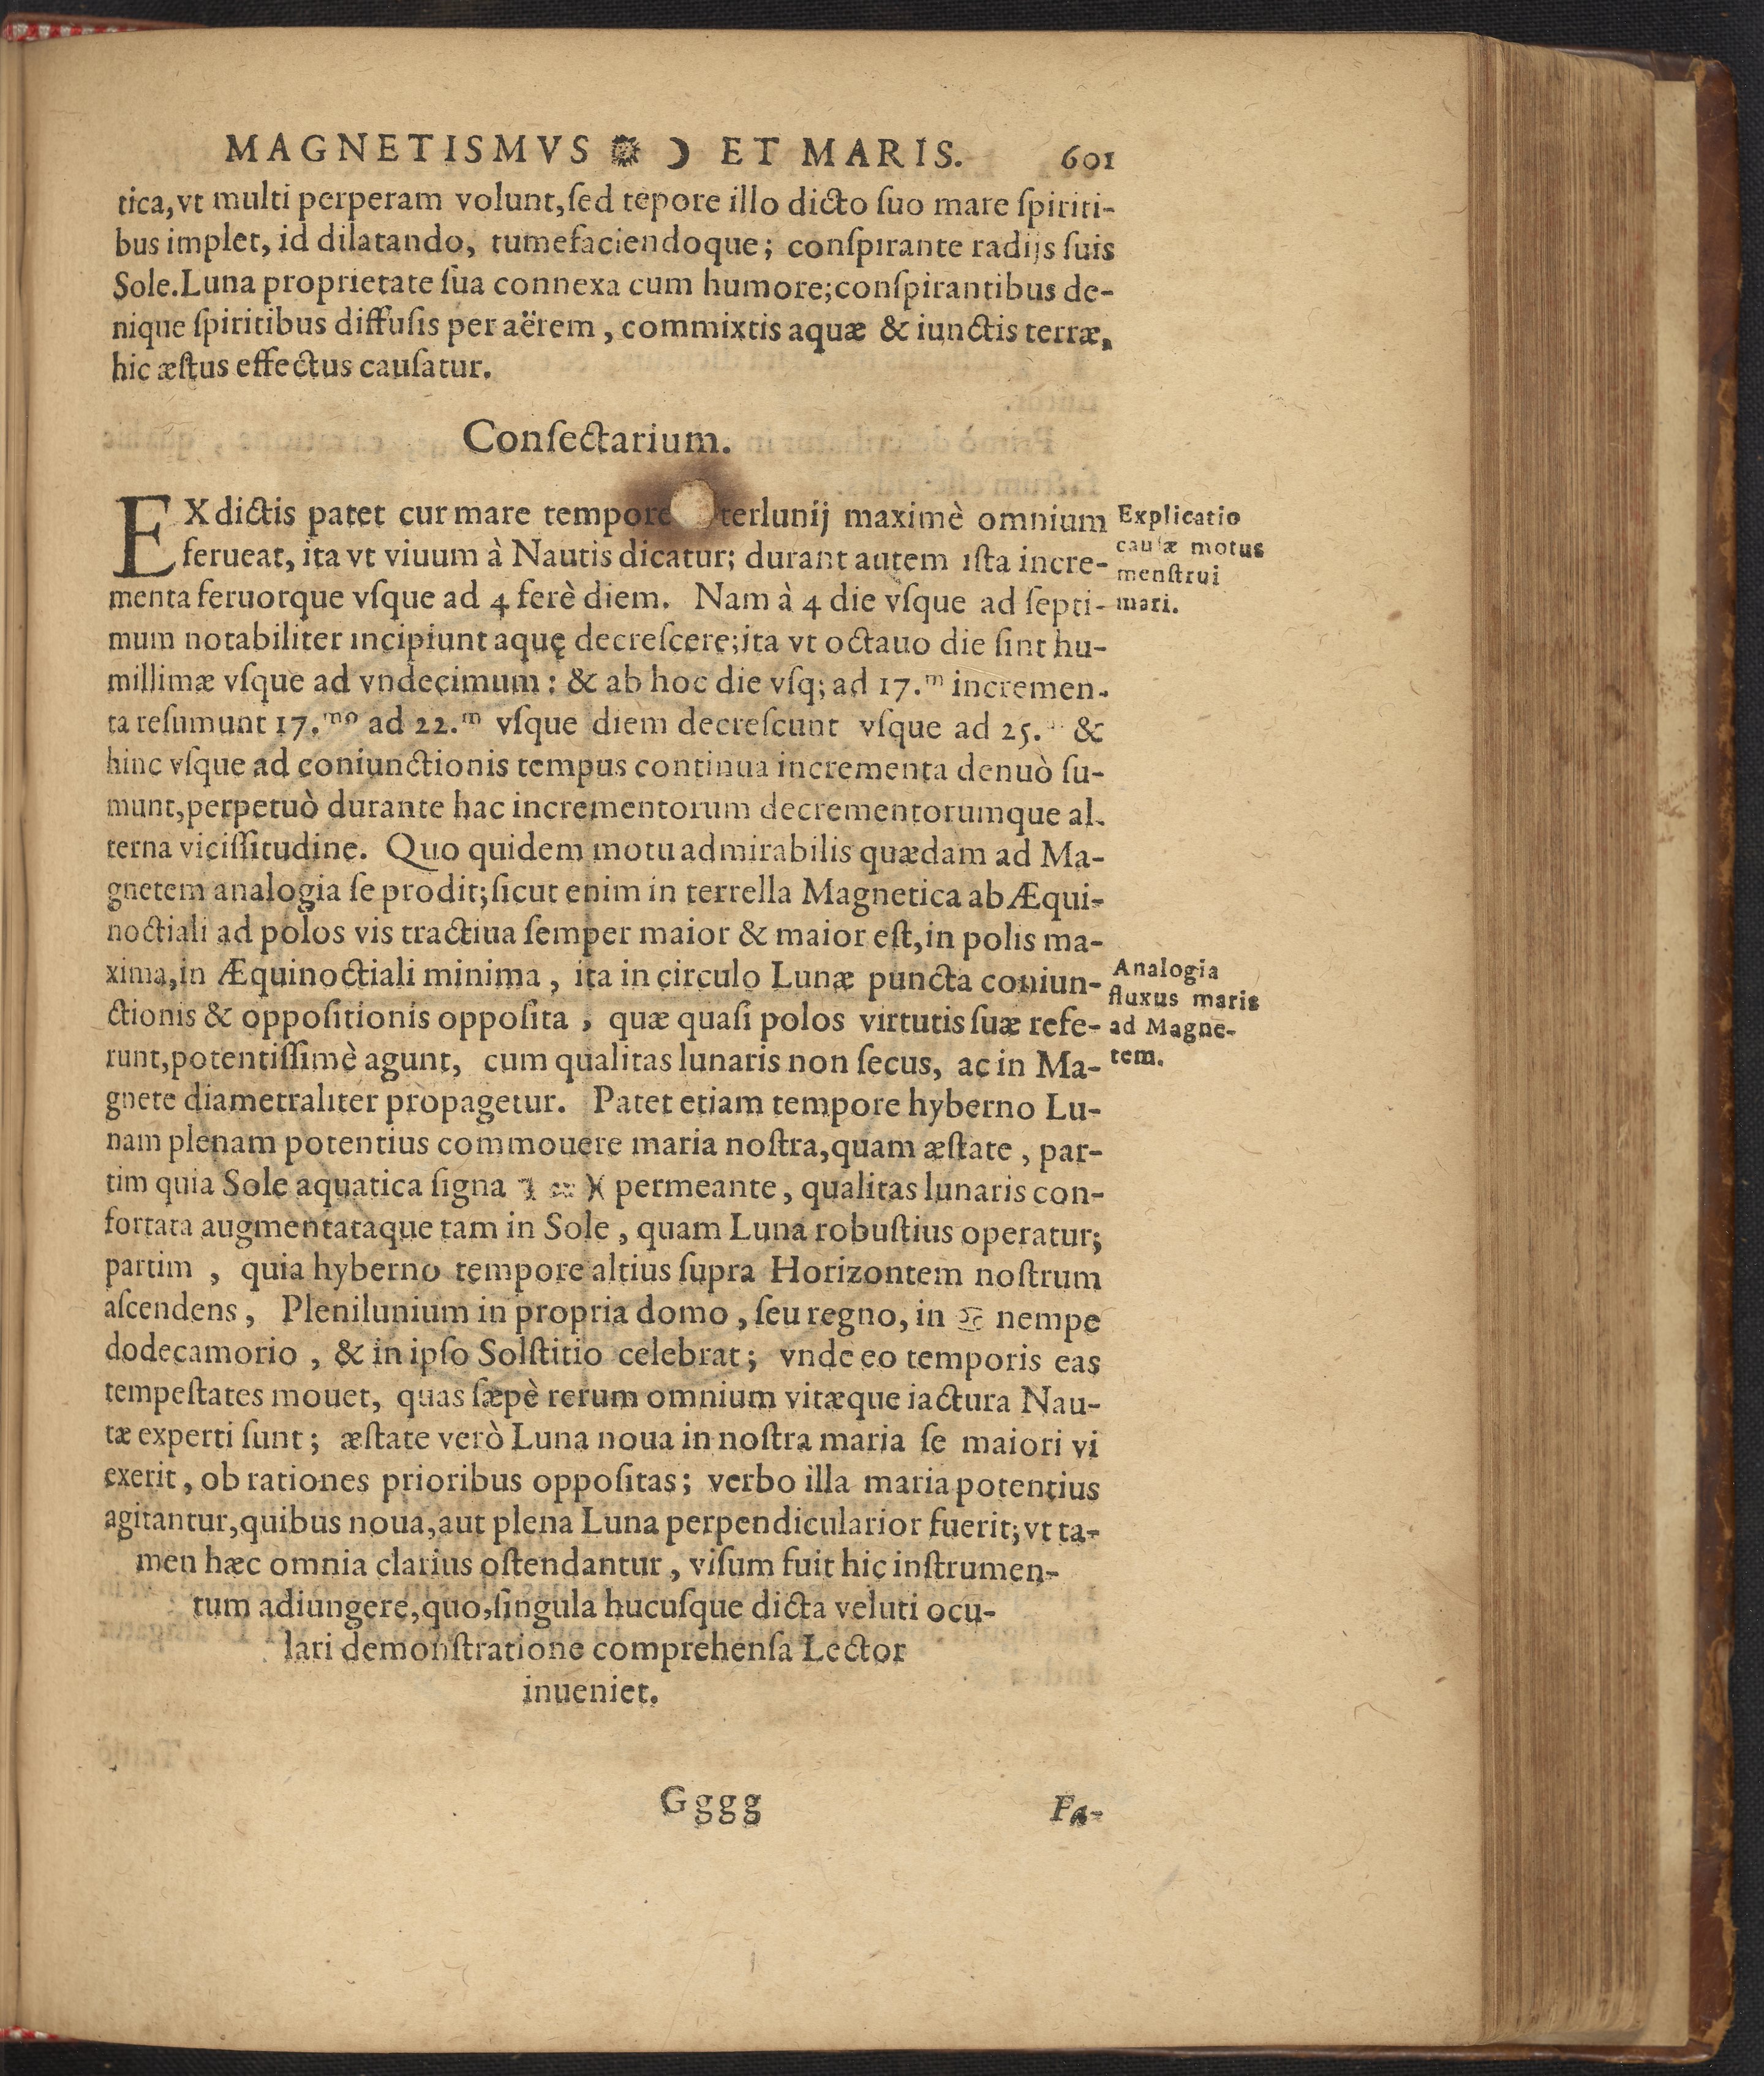 MAGNETISMVS ☉ ☽ ET MARIS. 601
tica,vt multi perperam volunt,ſed tepore illo dicto ſuo mare ſpiriti-
bus implet, id dilatando, tumefaciendoque; conſpirante radijs ſuis
Sole.Luna proprietate ſua connexa cum humore;conſpirantibus de-
nique ſpiritibus diffuſis per aërem, commixtis aquæ & iunctis terræ,
hic æſtus effectus cauſatur.
Conſectarium.
EX dictis patet cur mare tempore terlunij maximè omnium
ferueat, ita vt viuum à Nautis dicatur; durant autem iſta incre-
menta feruorque vſque ad 4 ferè diem. Nam à 4 die vſque ad ſepti-
mum notabiliter incipiunt aquę decreſcere;ita vt octauo die ſint hu-
millimæ vſque ad vndecimum: & ab hoc die vſq; ad 17.ᵐ incremen-
ta reſumunt 17.ᵐᵒ ad 22.ᵐ vſque diem decreſcunt vſque ad 25. &
hinc vſque ad coniunctionis tempus continua incrementa denuò ſu-
munt,perpetuò durante hac incrementorum decrementorumque al-
terna viciſſitudine. Quo quidem motu admirabilis quædam ad Ma-
gnetem analogia ſe prodit;ſicut enim in terrella Magnetica ab Æqui-
noctiali ad polos vis tractiua ſemper maior & maior eſt,in polis ma-
xima,in Æquinoctiali minima, ita in circulo Lunæ puncta coniun-
ctionis & oppoſitionis oppoſita, quæ quaſi polos virtutis ſuæ refe-
runt,potentiſſimè agunt, cum qualitas lunaris non ſecus, ac in Ma-
gnete diametraliter propagetur. Patet etiam tempore hyberno Lu-
nam plenam potentius commouere maria noſtra,quam æſtate, par-
tim quia Sole aquatica ſigna ♑ ♒ ♓ permeante, qualitas lunaris con-
fortata augmentataque tam in Sole, quam Luna robuſtius operatur;
partim, quia hyberno tempore altius ſupra Horizontem noſtrum
aſcendens, Plenilunium in propria domo, ſeu regno, in ♋ nempe
dodecamorio, & in ipſo Solſtitio celebrat; vnde eo temporis eas
tempeſtates mouet, quas ſæpè rerum omnium vitæque iactura Nau-
tæ experti ſunt; æſtate verò Luna noua in noſtra maria ſe maiori vi
exerit, ob rationes prioribus oppoſitas; verbo illa maria potentius
agitantur,quibus noua,aut plena Luna perpendicularior fuerit;vt ta-
men hæc omnia clarius oſtendantur, viſum fuit hic inſtrumen-
tum adiungere,quo,ſingula hucuſque dicta veluti ocu-
lari demonſtratione comprehenſa Lector
inueniet.
Explicatio
cauſæ motus
menſtrui
mari.
Analogia
fluxus maris
ad Magne-
tem.
Gggg Fa-